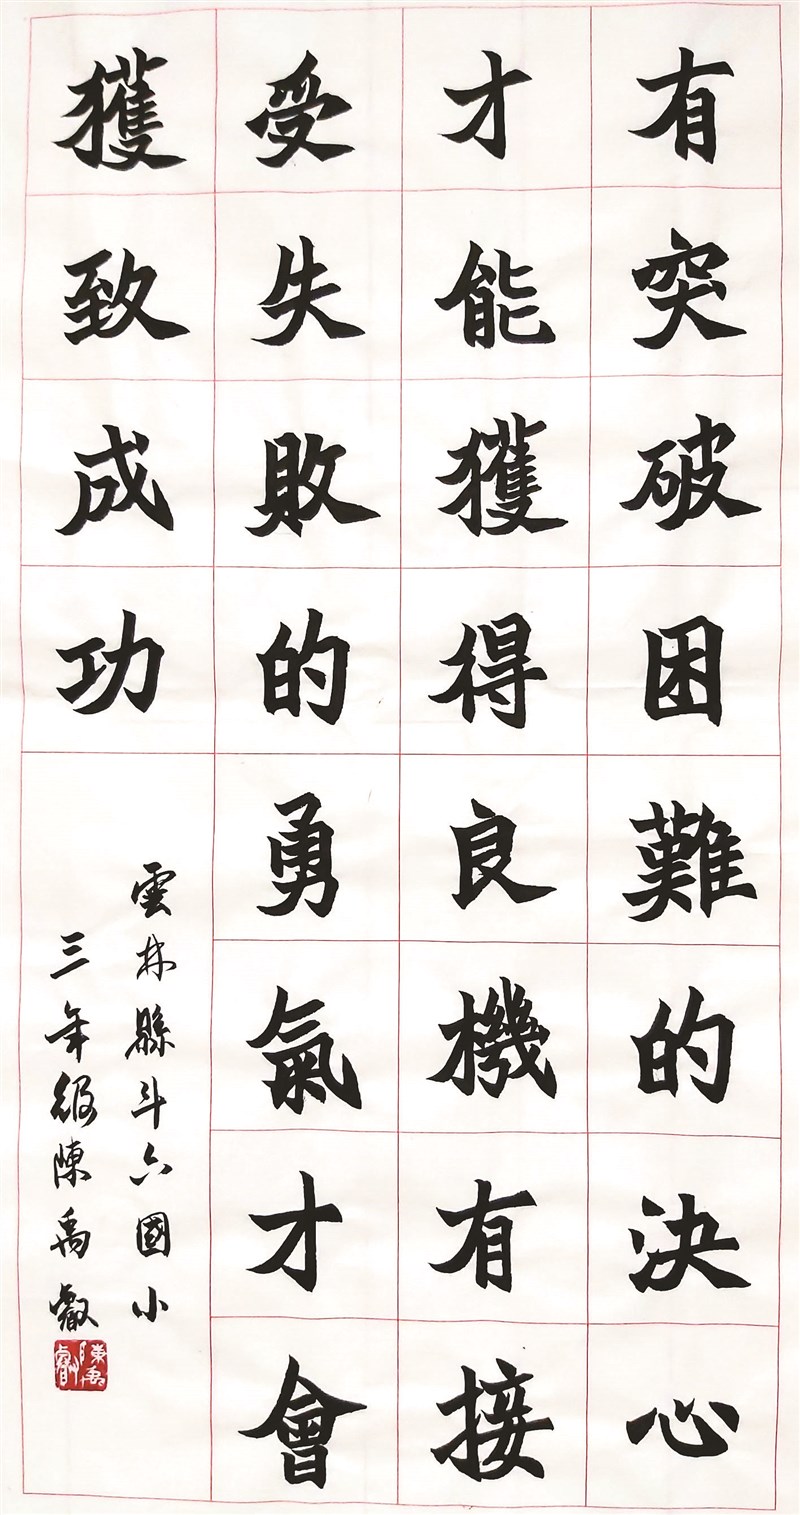 有突破困難的決心
才能獲得良機有接
受失敗的勇氣才會
獲致成功
雲林縣斗六國小
三年級陳禹叡